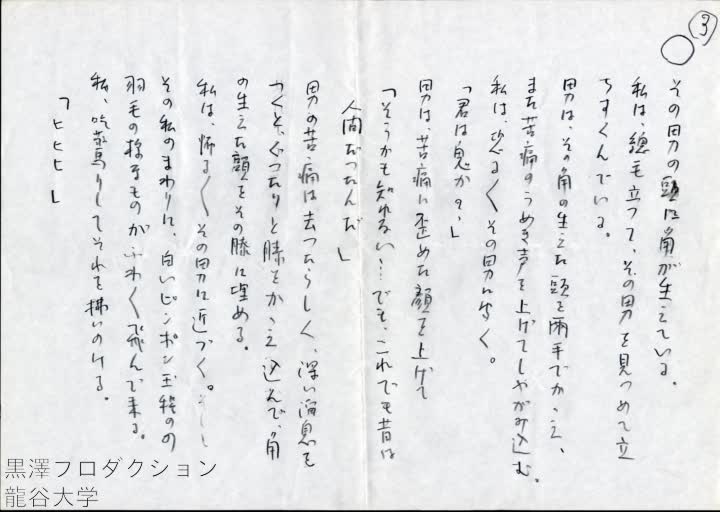 3
その男の頭に角が生えている。
私は、總毛立つて、その男を見つめて立
ちすくんでいる。
男は、その角の生えた頭を両手でかゝえ、
また苦痛のうめき声を上げてしやがみ込む。
私は、恐る〱その男に聞く。
「君は鬼か?」
男は、苦痛に歪めた顔を上げて
「そうかも知れない…でも、これでも昔は
人間だつたんだ」
男の苦痛は去つたらしく、深い溜息を
つくと、ぐつたりと膝をかゝえ込んで、角
の生えた顔をその膝に埋める。
私は、怖る〱その男に近づく。そして
その私のまわりに、白いピンポン玉程の
羽毛の様なものがふわ〱飛んで来る。
私、吃驚りしてそれを拂いのける。
「ヒヒヒ」
黒澤プロダクション
龍谷大学